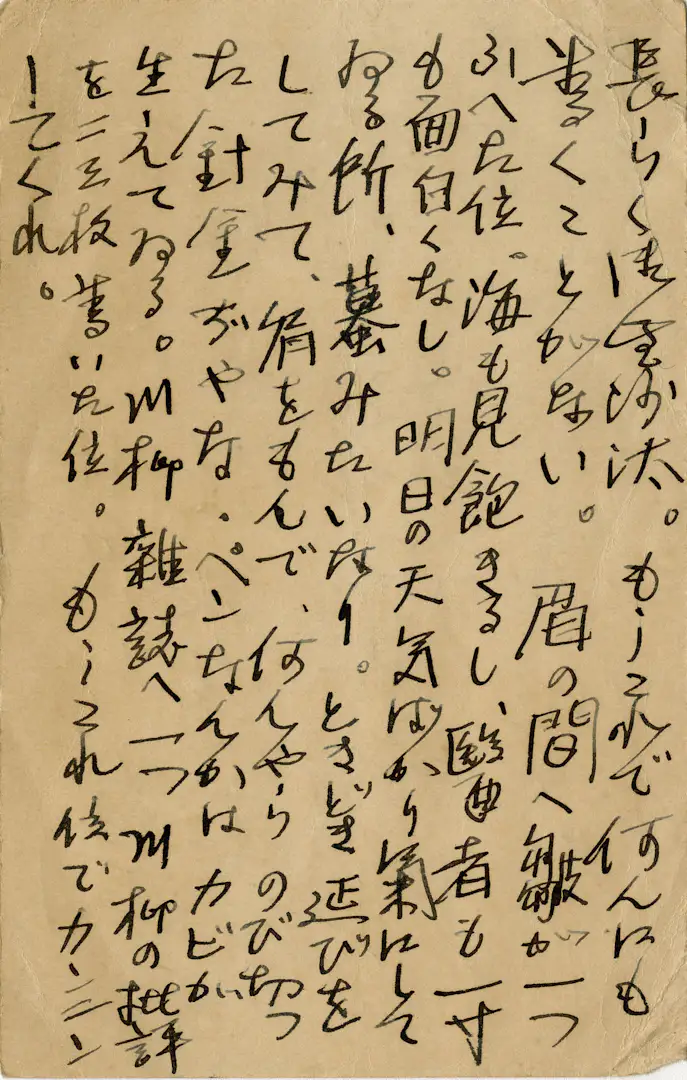 長らく御無沙汰。もうこれで何んにも
書くことがない。 眉の間へ皺が一つ
ふへた位。海も見飽きるし、醫者も一寸
も面白くなし。明日の天気ばかり氣にして
ゐる所、蟇みたいなり。ときどき延びを
してみて、肩をもんで、何んやらのび切つ
た針金ぢやな、ペンなんかはカビが
生えてゐる。川柳雜誌へ一つ川柳の批評
を二三枚書いた位。 もうこれ位でカンニン
してくれ。